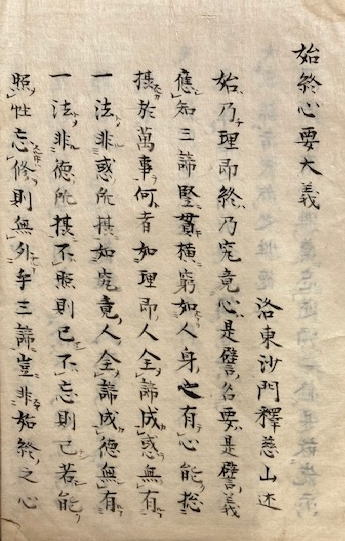 始終心要大義
洛東沙門釋慈山述
始乃理即終乃究竟心是譬名要是譬義
應知三諦竪貫横窮如人身之有心能総
摂於萬事何者如理即人全諦成惑無有
一法非惑所摂如究竟人全諦成德無有
一法非德所摂不照則已不忘則已若能
照性忘修則無外乎三諦豈非始終之心